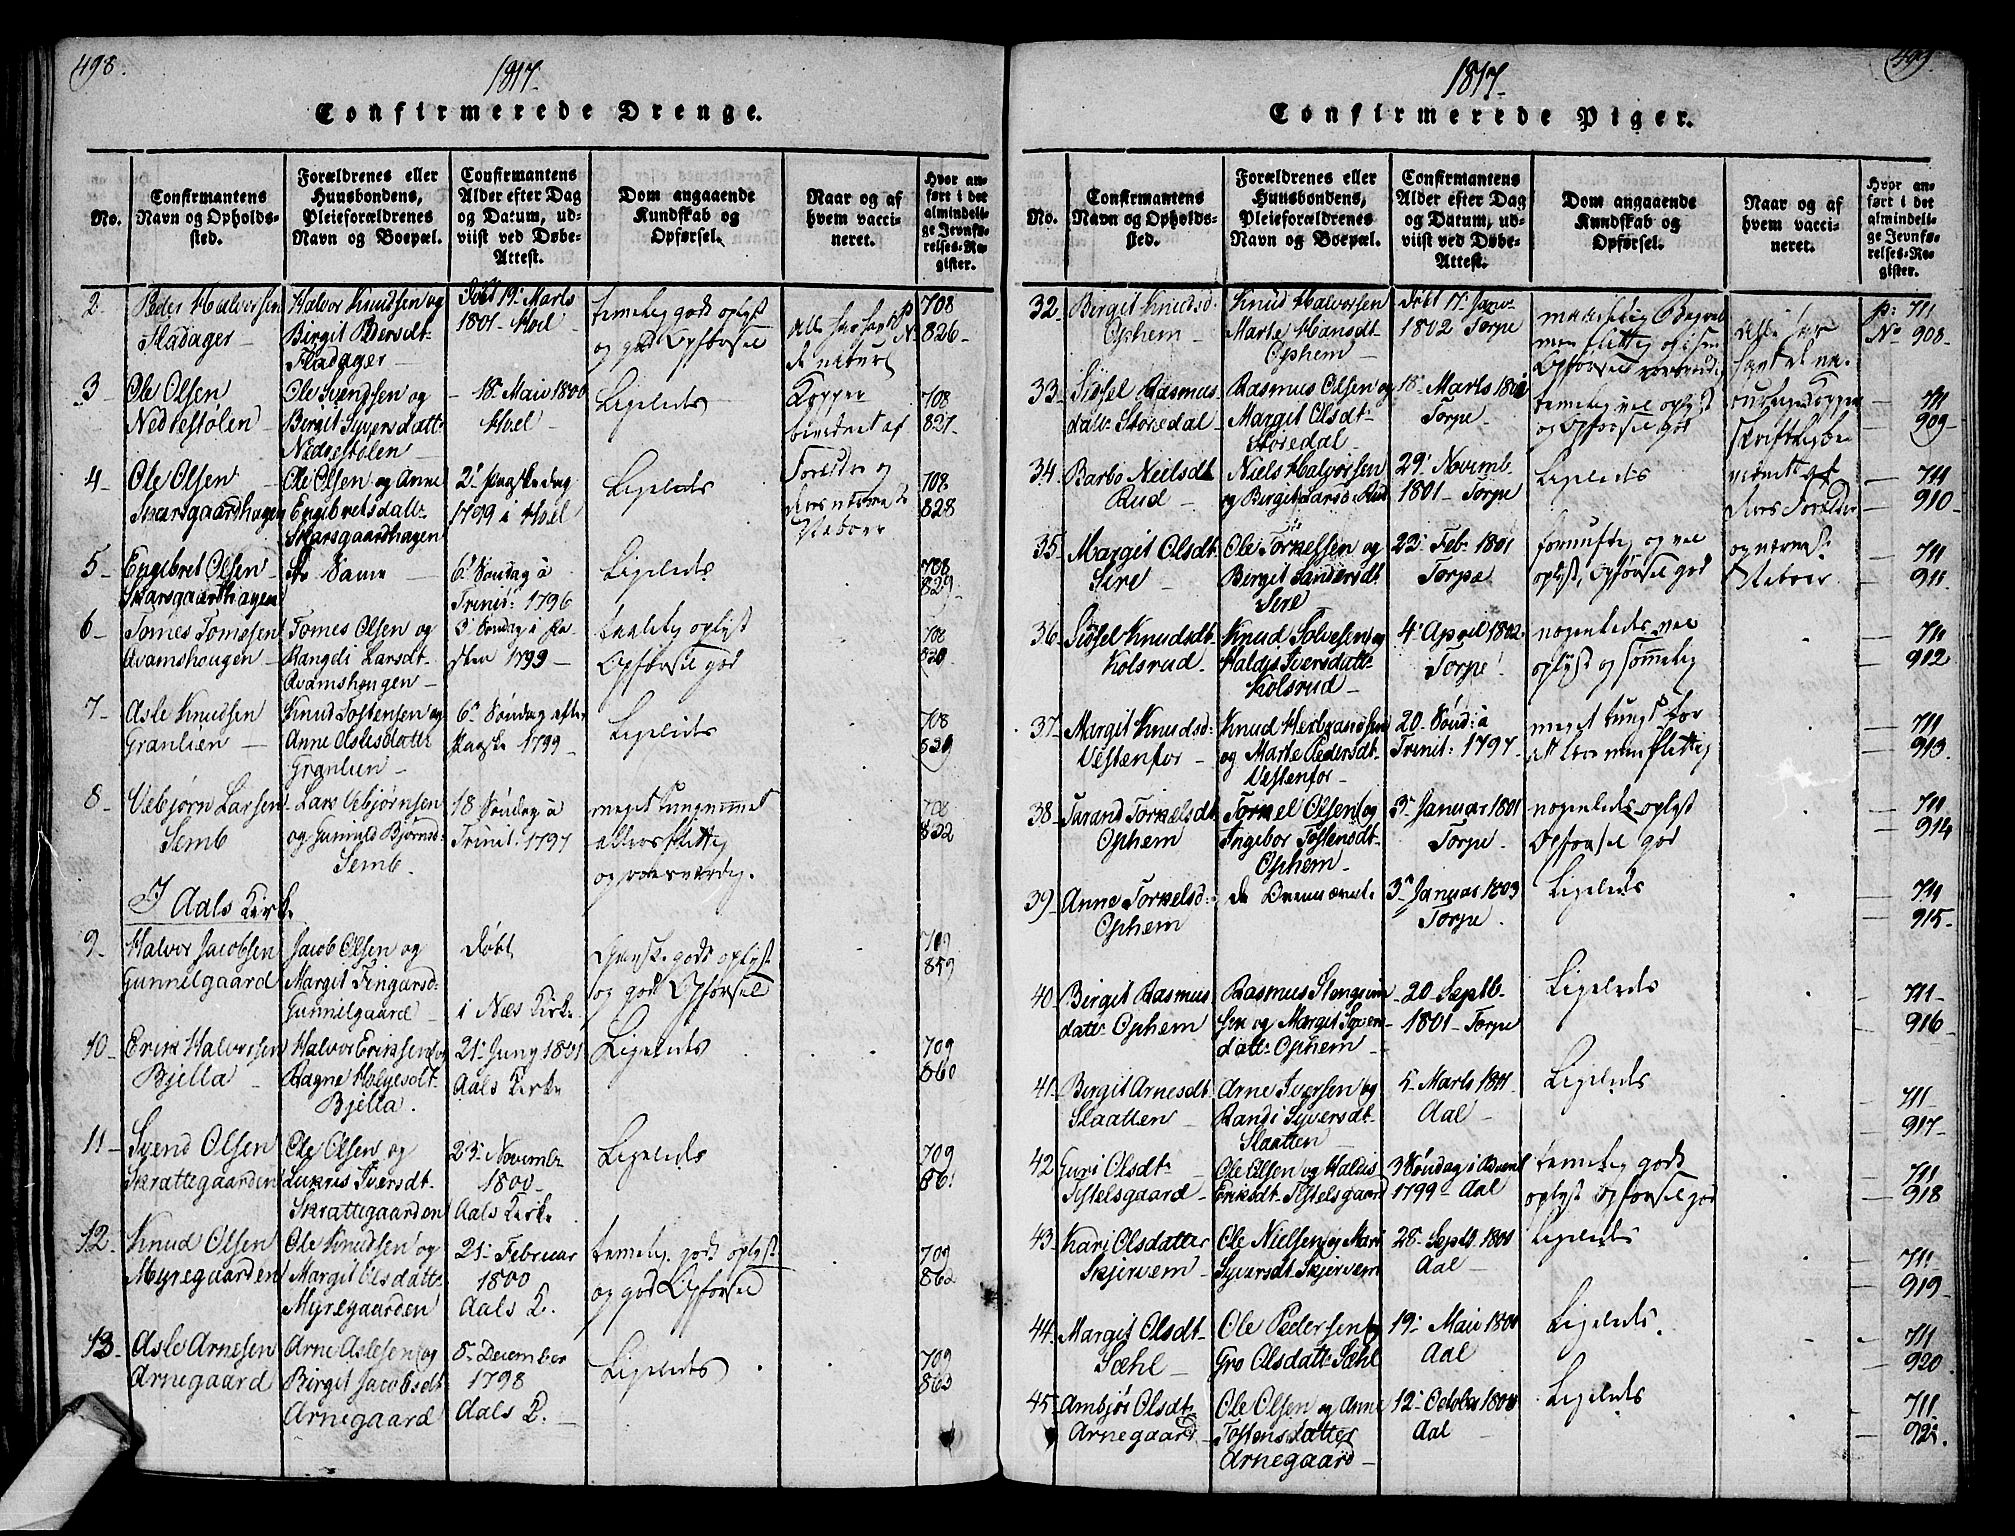 498.
1817.
Confirmerede Drenge.
No.
Confirmantens
Navn og Opholds-
sted.
Forældrenes eller
Huusbondens,
Pleieforældrenes
Navn og Boepæl.
Confirmantens
Alder efter Dag
og Datum, ud-
viist ved Døbe-
Attest.
Dom angaaende
Kundskab og
Opførsel.
Naar og af
hvem vacci-
neret.
Hvor an-
ført i det
almindeli-
ge Jevnfø-
relses-Re-
gister.
2 Peder Halvorsen
Fladager
Halvor Knudsen og
Birgit Persdt.
Fladager
Døbt 19. Marts
1801 Hoel
temelig godt oplyst
og god Opførsel
Alle har havt
de naturl.
Kopper
bevidnet af
Forældre og
deres nærmeste
Naboer
708
826
3 Ole Olsen
Nedrestølen
Ole Svendsen og
Birgit Syversdatt.
Nedrestølen
18. Maii 1800
Hoel
Ligeleds
708
827
4 Ole Olsen
Skarsgaardhagen
Ole Olsen og Anne
Engebretsdatt.
Skarsgaardhagen
2. Paaskedag
1799 i Hoel
Ligeleds
708
828
5 Engebret Olsen
Skarsgaardhagen
de Same
6. Søndag à
Trinit: 1796
Ligeleds
708
829
6 Tomes Tomesen
Qvamshougen
Tomes Olsen og
Rangdi Larsdt.
Qvamshougen
3. Søndag i Fa-
sten 1799
taalelig oplyst
Opførsel god
708
830
7 Asle Knudsen
Granlien
Knud Tostensen og
Anne Aslesdatter
Granlien
6. Søndag efter
Paaske 1799
Ligeleds
708
831
8 Vebjørn Larsen
Semb
Lars Vebjørnsen
og Gunnild Bjørnsd.
Semb.
18 Søndag à
Trinit: 1797
meget tungnemmet
ellers flittig
og roesværdig.
708
832
I Aals Kirke
9 Halvor Jacobsen
Gunnilgaard
Jacob Olsen og
Margit Fingarsd:
Gunnilgaard
Døbt
i Næs Kirke
Ganske godt oplyst
og god Opførsel
709
859
10 Erik Halvorsen
Bjella
Halvor Eriksen og
Ragne Helgesdt.
Bjella.
21. Juny 1801
Aals Kirke
Ligeleds
709
860
11 Svend Olsen
Skrattegaarden
Ole Olsen og
Lukris Iversdt.
Skrattegaarden
23. Novemb.
1800
Aals Kirke
Ligeleds
709
861
12 Knud Olsen
Myregaarden
Ole Knudsen og
Margit Olsdatt.
Myregaarden
21. Februar
1800
Aals K.
temelig godt oplyst
og god Opførsel
709
862
13 Asle Arnesen
Arnegaard
Arne Aslesen og
Birgit Jacobsdt
Arnegaard
8. December
1798
Aals K.
Ligeleds
709
863
499.
1817.
Confirmerede Piger.
No.
Confirmantens
Navn og Opholds-
sted.
Forældrenes eller
Huusbondens,
Pleieforældrenes
Navn og Boepæl.
Confirmantens
Alder efter Dag
og Datum, ud-
viist ved Døbe-
Attest.
Dom angaaende
Kundskab og
Opførsel.
Naar og af
hvem vacci-
neret.
Hvor an-
ført i det
almindeli-
ge Jevnfø-
relses-Re-
gister.
32 Birgit Knudsd.
Ophem
Knud Halvorsen
Marte Hansdt.
Ophem
Døbt 17. Janv.
1802 Torpe
men flittig og i sin
Opførsel
Alle har
havt de na-
turlige Kopper
skriftlig be-
vidnet af
deres Forældre
og nærmest.
Naboer.
p: 711
No 908
33 Sidsel Rasmus
datt. Storedal
Rasmus Olsen og
Margit Olsdt.
Storedal
18. Marts 1801
Torpe
temelig vel oplyst
og Opførsel god
711
909
34 Barbo Neilsdt
Rud
Niels Halvorsen
og Birgit Larsd. Rud
29. Novemb.
1801 Torpe
Ligeleds
711
910
35 Margit Olsdt.
Sire
Ole Torkelsen og
Birget Sandersdt.
Sire
22. Feb. 1801
Torpe
fornuftig og vel
oplyst, Opførsel god
711
911
36 Sidsel Knudsdt.
Kolsrud
Knud Solvesen og
Haldis Iversdatt.
Kolsrud
4. April 1802
Torpe
nogenleds vel
oplyst og sømmelig
711
912
37 Margit Knudsd:
Vestenfor
Knud Herbrandsen
og Marte Pedersdt.
Vestenfor
20. Sønd: à
Trinit: 1797
meget tungt for
at lære men flittig
711
913
38 Turand Torkelsdt
Ophem
Torkel Olsen og
Ingebor Tostensdt.
Ophem
3. Januar 1801
Torpe
nogenleds oplyst
Opførsel god
711
914
39 Anne Torkelsd:
Ophem
de Ovennævnte
3. Januar 1803
Torpe
Ligeleds
711
915
40 Birgit Rasmus
datt. Ophem
Rasmus Stengrim
sen og Margit Syver
datt. Ophem
20 Septb.
1801 Torpe
Ligeleds
711
916
41 Birgit Arnesdt.
Slaatten
Arne Iversen og
Randi Syversdt.
Slaatten
5. Marts 1801
Aal
Ligeleds
711
917
42 Guri Olsdt.
Tistelsgaard
Ole Olsen og Haldis
Eriksdt. Tistelsgaard
3 Søndag i Advent
1799 Aal
temelig godt
oplyst Opførsel god
711
918
43 Kari Olsdatter
Skjervem
Ole Nielsen og Mari
Syversdt. Skjervem
28. Septb. 1801
Aal
Ligeleds
711
919
44 Margit Olsdt.
Sæhl
Ole Pedersen og
Gro Olsdatt. Sæhl
19. Maii 1801
Aal
Ligeleds.
711
920
45 Ambjør Olsdt.
Arnegaard
Ole Olsen og Anne
Tostensdatter
Arnegaard
12. October 1800
Aal
Ligeleds
711.
921.